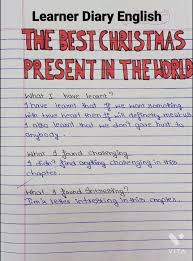 Learner Diary English
THE BEST CHRISTMAS
PRESENT IN THE WORLD
What I have learnt?
I have learnt that if we want something
with true heart then it will definetly
I also learnt that we don't gave hurt to
anybody.
What I found challenging
I didn't find anything challenging in this
chapter.
What I found Intressing?
Jim's letter intressing in this chapter.
VITA